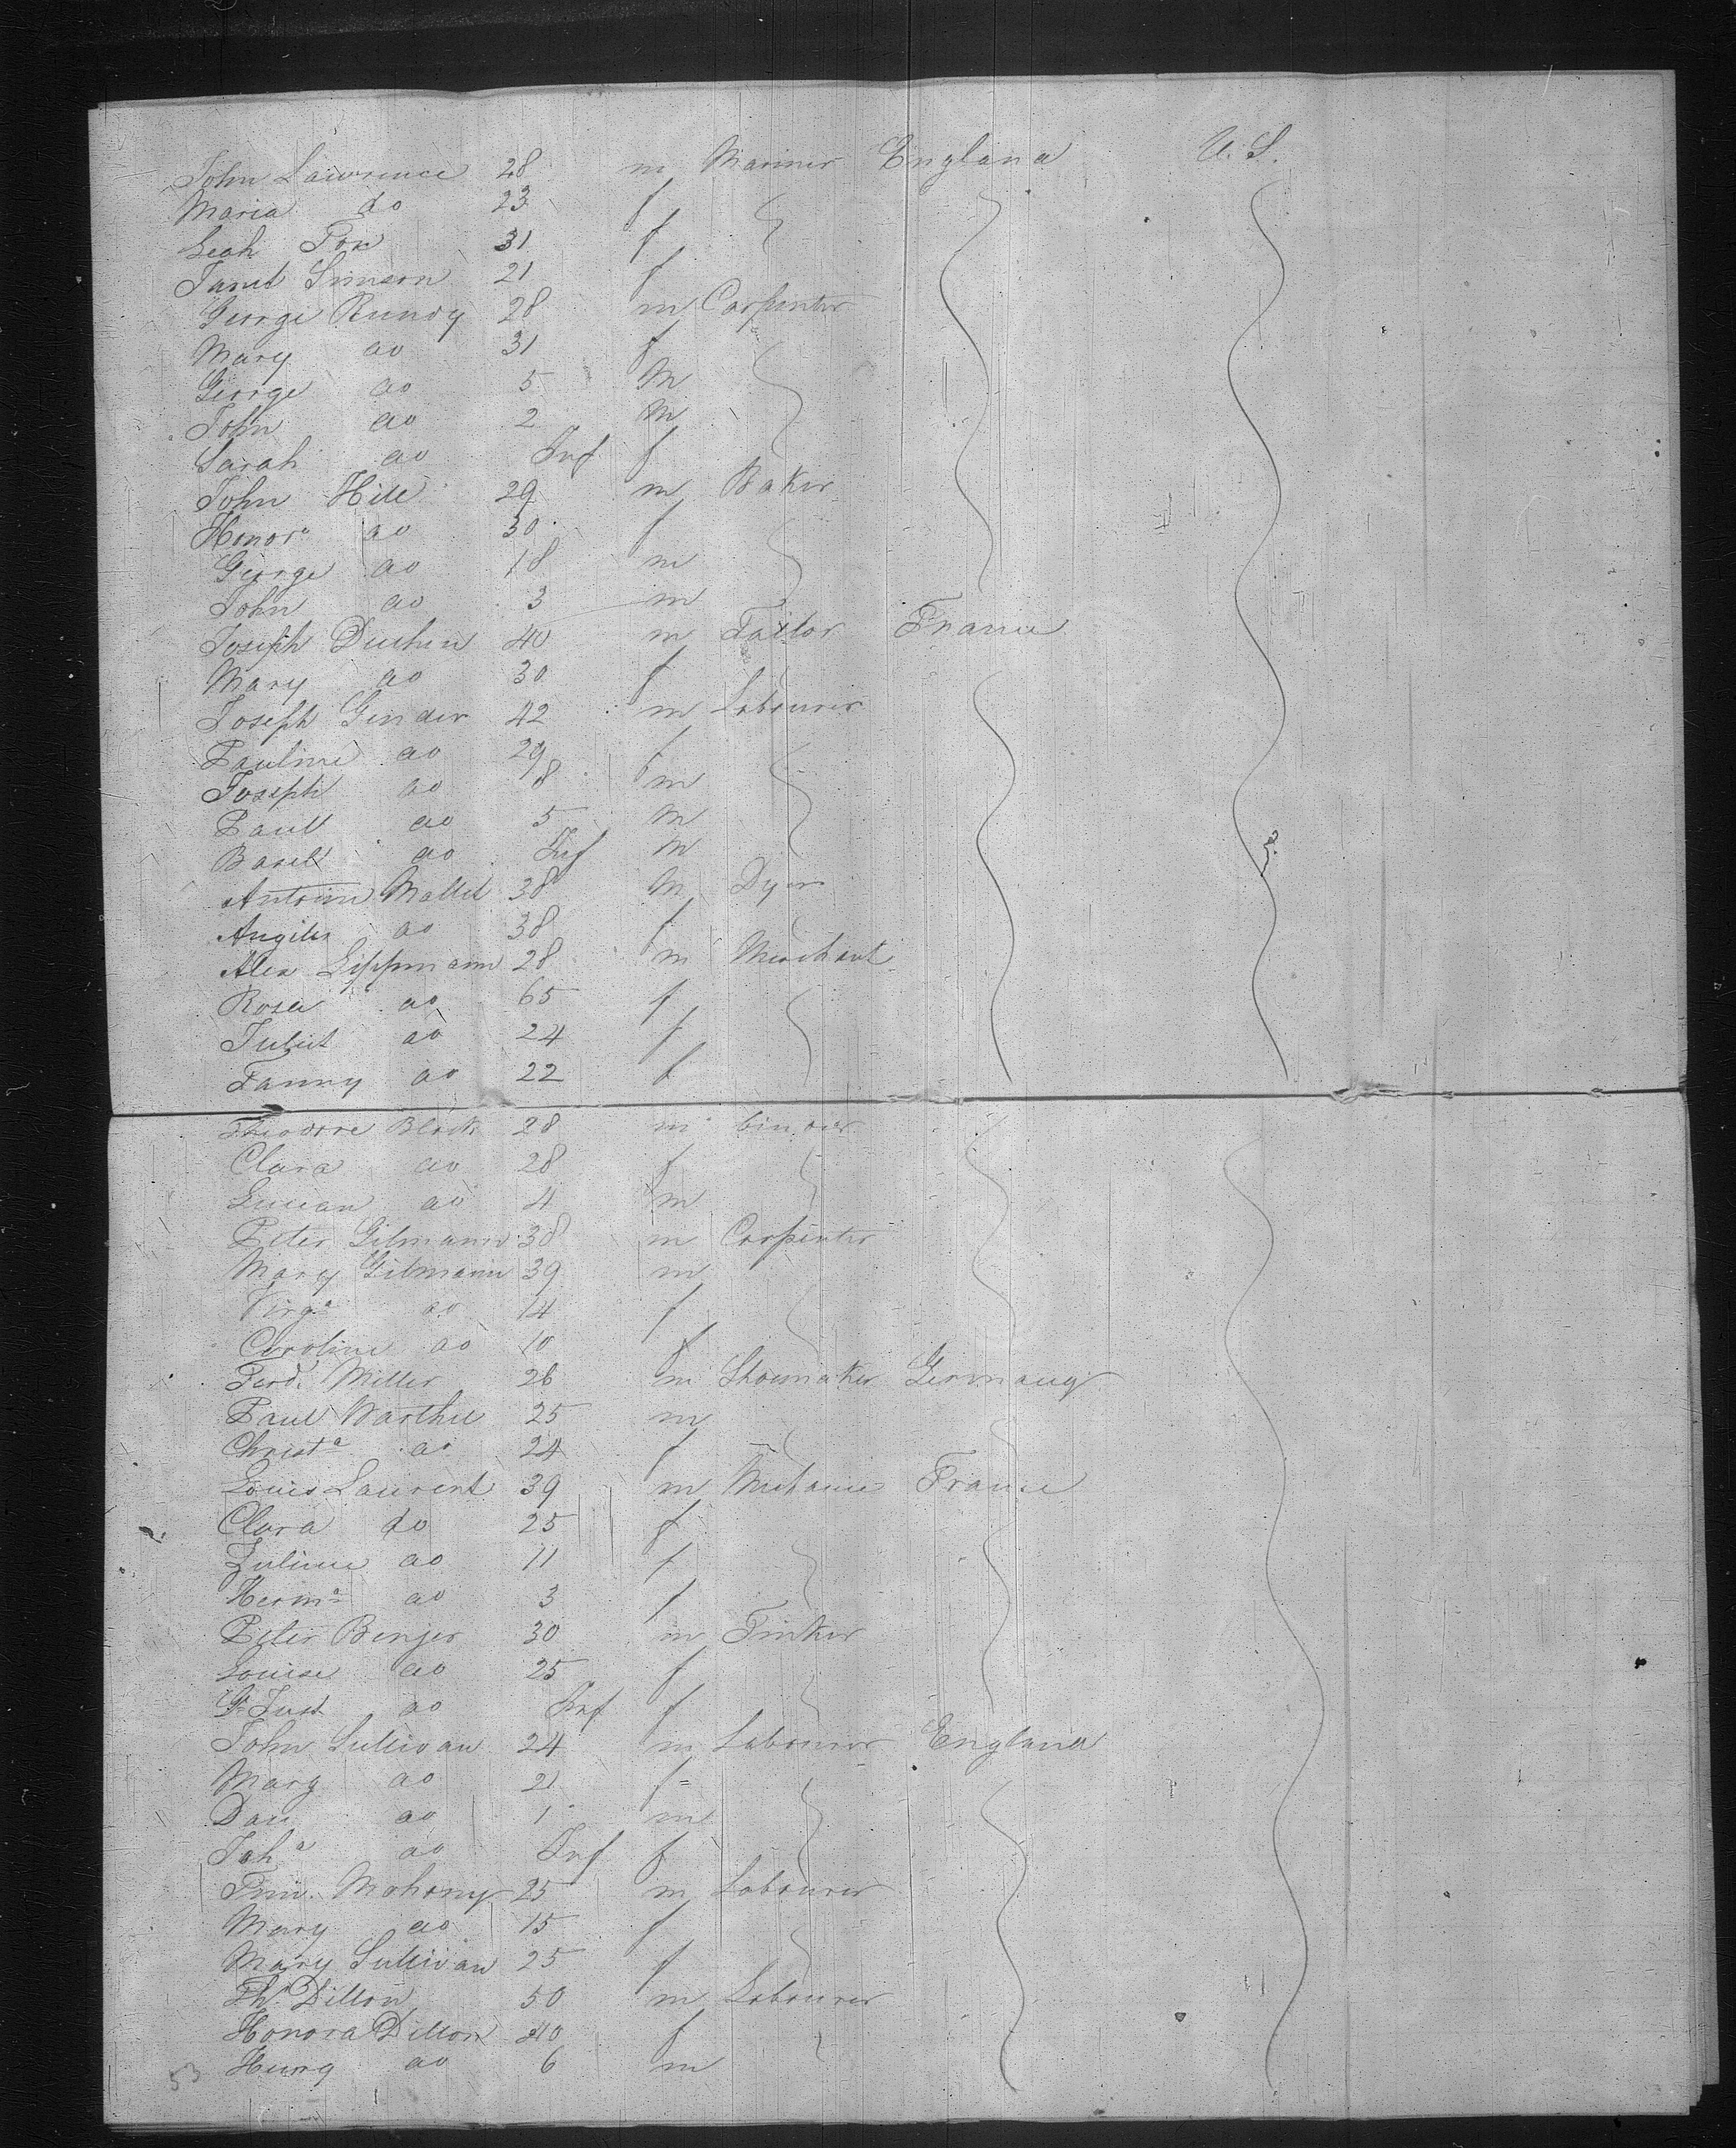 John Lawrence 28 m Mariner England U.S.
Maria do 23 f
Leah Fox 31 f
Janet Simson 21 f
George Rundy 28 m Carpenter
Mary do 31 f
George do 5 M
John do 2 M
Sarah do Inf f
John Hill 29 m Baker
Honora do 30 f
George do 18 m
John do 3 m
Joseph 40 m Tailor France
Mary do 30 f
Joseph Gender 42 m Labourer
Pauline do 29 f
Joseph do 8 m
Paull do 5 M
Basil do Inf M
Antoin Mallet 38 M Dyer
do 38 f
Alex Lippmann 28 m Merchant
Rosa do 65 f
Juliet do 24 f
Fanny do 22 f
Theodore Block 28 m
Clara do 28 f
Lucian do 4 m
Peter Gilmann 38 m Carpenter
Mary Gilmann 39 m
Virga do 14 f
Caroline do 10 f
Ferd. Miller 26 m Shoemaker Germany
Paul Warthe 25 m
Christa do 24 f
Louis Laurent 39 m Mechanic France
Clara do 25 f
do 11 f
Herma do 3 f
Peter Benger 30 m Tinker
Louise do 25 f
do Inf f
John Sullivan 24 m Labourer England
Mary do 21 f
Dan do 1 m
Joha do Inf f
Mahony 25 m Labourer
Mary do 15 f
Mary Sullivan 25 f
Th. Dillon 50 m Labourer
Honora Dillon 40 f
Henry do 6 m
53